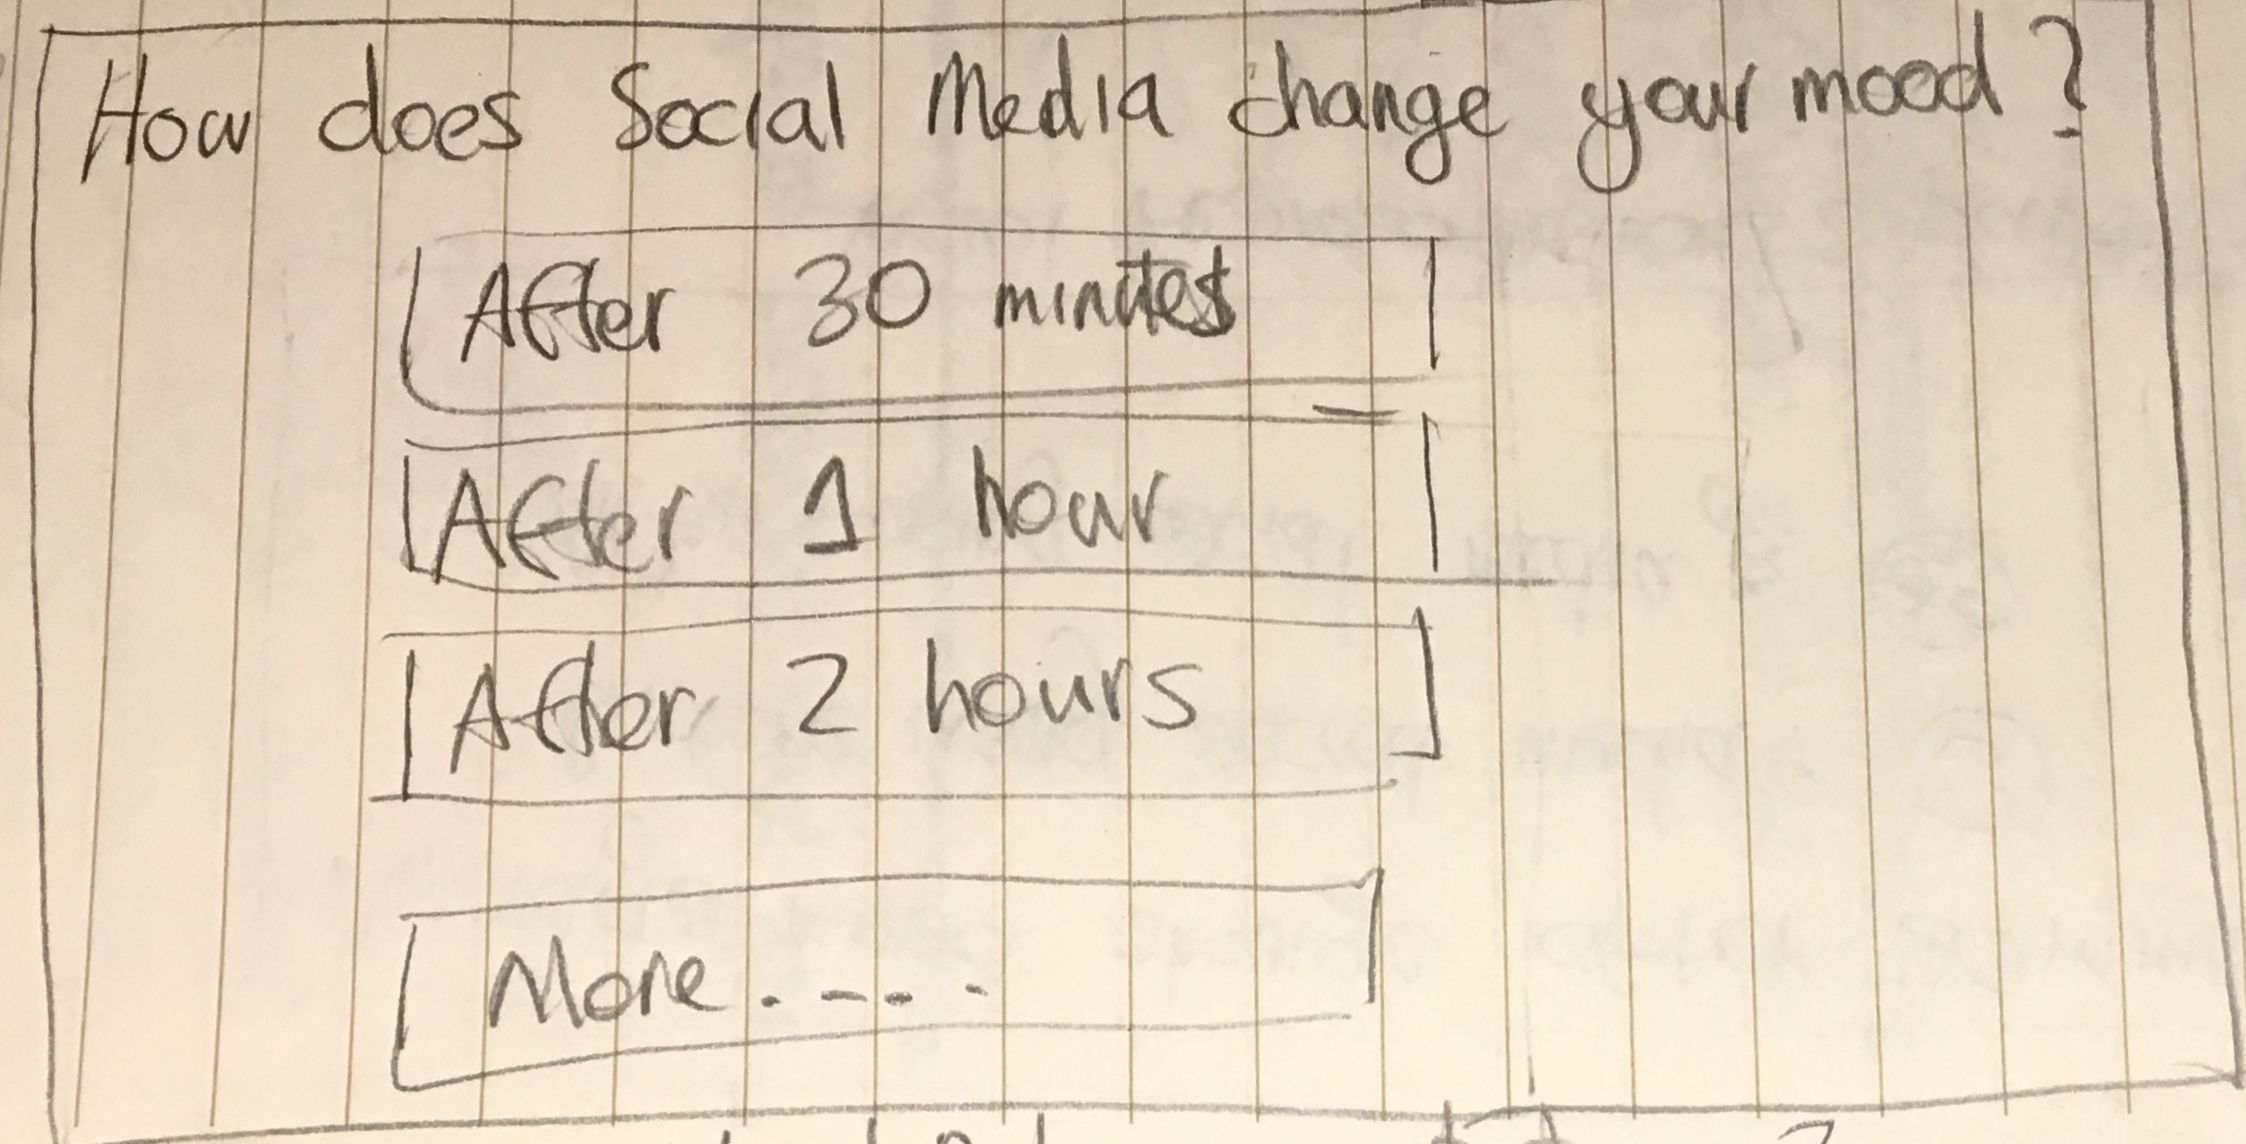 How does Social Media change your mood?
After 30 minutes
After 1 hour
After 2 hours
More.----